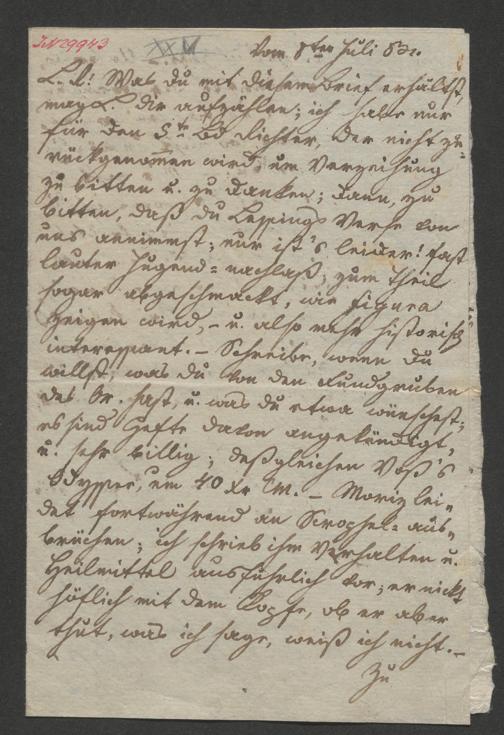 IN 29943 XXIV
Vom 8ten Juli 832.
L. E! Was du mit diesem Brief erhältst,
mag L. dir aufzählen; ich habe nur
für den 5tn Bd Richter, der nicht zu-
rückgenomen wird, um Verzeihung
zu bitten u. zu danken; dann, zu
bitten, daß du Leßings Verse von
uns annimmst; nur ist's leider! fast
lauter Jugend=nachlaß, zum Theil
sogar abgeschmackt, wie figura
zeigen wird, – u. also mehr historisch
interessant. – Schreibe, wenn du
willst, was du von den Fundgruben
des Or. hast, u. was du etwa wünschest;
es sind Hefte davon angekündigt,
u. sehr billig; deßgleichen Voß's
Odyssee, um 40 Xr CM. – Moriz lei-
det fortwährend an Scrophel=aus-
brüchen; ich schrieb ihm Verhalten u.
Heilmittel ausführlich vor; er nickt
höflich mit dem Kopfe, ob er aber
thut, was ich sage, weiß ich nicht. –
Zu